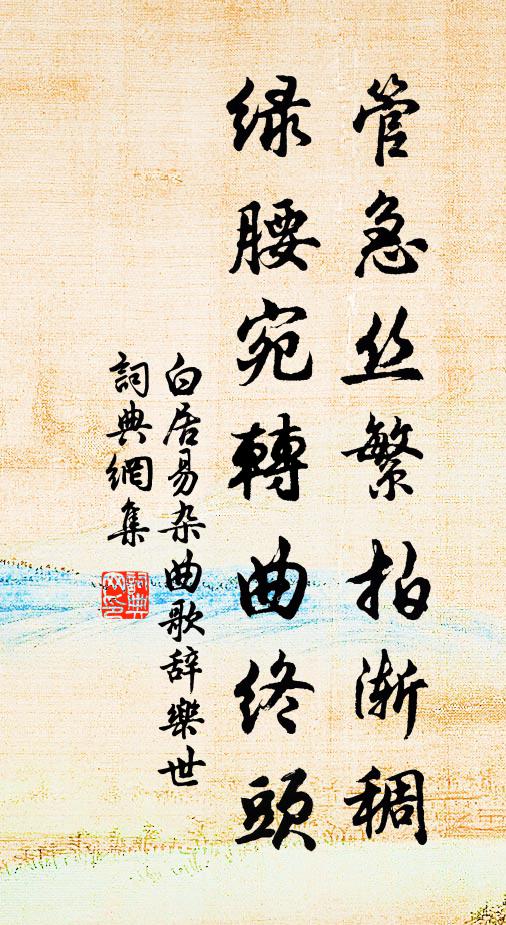 管急丝繁拍渐稠
绿腰宛轉曲终頭
白居易杂曲歌辞樂世
詞典網集